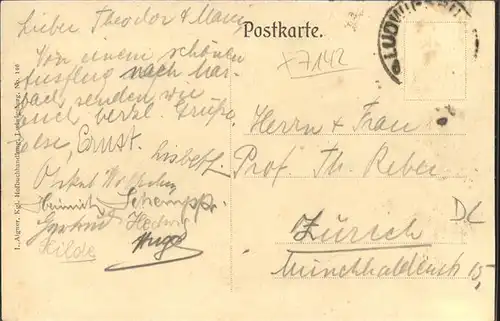 Lieber Theodor & Mary
Von einem schönen
Ausflug nach Mar-
bach senden wir
Euch herzl. Grüße
Else, Ernst.
Lisbeth
Heinrich Schempp
Gertrud Hedwig
Hilde Hugo
Postkarte.
LUDWI
+7142
Herrn & Frau
Prof. Th. Reber
DC
Zürich
Münchhaldenstr 15,
L. Aigner, Kgl. Hofbuchhandlung, Ludwigsburg. No. 140